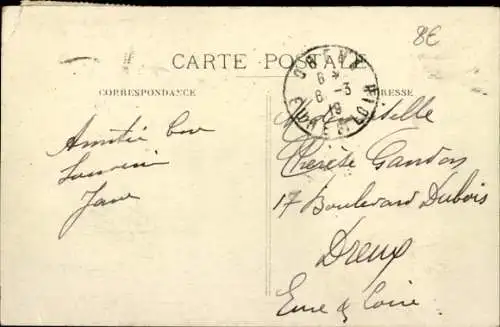 8€
CARTE POSTALE
CORRESPONDANCE
ADRESSE
EURE & LOIR
6 -3
19
Amitié
Souvenir
Mademoiselle
Thérèse
17 Boulevard Dubois
Dreux
Eure & Loire